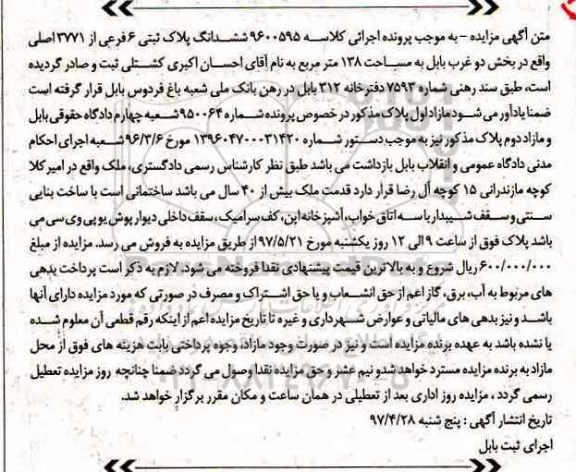 متن آگهی مزایده - به موجب پرونده اجرائی کلاسه ۹۶۰۰۵۹۵ ششدانگ پلاک ثبتی ۶ فرعی از ۳۷۷۱ اصلی
واقع در بخش دو غرب بابل به مساحت ۱۳۸ متر مربع به نام آقای احسان اکبری کشتلی ثبت و صادر گردیده
است، طبق سند رهنی شماره ۷۵۹۳ دفترخانه ۳۱۲ بابل در رهن بانک ملی شعبه باغ فردوس بابل قرار گرفته است
ضمنا یادآور می شود مازاد اول پلاک مذکور در خصوص پرونده شماره ۹۵۰۰۶۴ شعبه چهارم دادگاه حقوقی بابل
و مازاد دوم پلاک مذکور نیز به موجب دستور شماره ۱۳۹۶۰۴۷۰۰۰۳۱۴۲۰ مورخ ۹۶/۳/۶ شعبه اجرای احکام
مدنی دادگاه عمومی و انقلاب بابل بازداشت می باشد طبق نظر کارشناس رسمی دادگستری، ملک واقع در امیر کلا
کوچه مازندرانی ۱۵ کوچه آل رضا قرار دارد قدمت ملک بیش از ۴۰ سال می باشد ساختمانی است با ساخت بنایی
سنتی و سقف شیبدار با سه اتاق خواب، آشپزخانه اپن، کف سرامیک، سقف داخلی دیوار پوش یو پی وی سی می
باشد پلاک فوق از ساعت ۹ الی ۱۲ روز یکشنبه مورخ ۹۷/۵/۲۱ از طریق مزایده به فروش می رسد. مزایده از مبلغ
۶۰۰/۰۰۰/۰۰۰ ریال شروع و به بالاترین قیمت پیشنهادی نقدا فروخته می شود، لازم به ذکر است پرداخت بدهی
های مربوط به آب، برق، گاز اعم از حق انشعاب و یا حق اشتراک و مصرف در صورتی که مورد مزایده دارای آنها
باشد و نیز بدهی های مالیاتی و عوارض شهرداری و غیره تا تاریخ مزایده اعم از اینکه رقم قطعی آن معلوم شده
یا نشده باشد به عهده برنده مزایده است و نیز در صورت وجود مازاد، وجوه پرداختی بابت هزینه های فوق از محل
مازاد به برنده مزایده مسترد خواهد شد و نیم عشر و حق مزایده نقدا وصول می گردد ضمنا چنانچه روز مزایده تعطیل
رسمی گردد ، مزایده روز اداری بعد از تعطیلی در همان ساعت و مکان مقرر برگزار خواهد شد.
تاریخ انتشار آگهی : پنج شنبه ۹۷/۴/۲۸
اجرای ثبت بابل